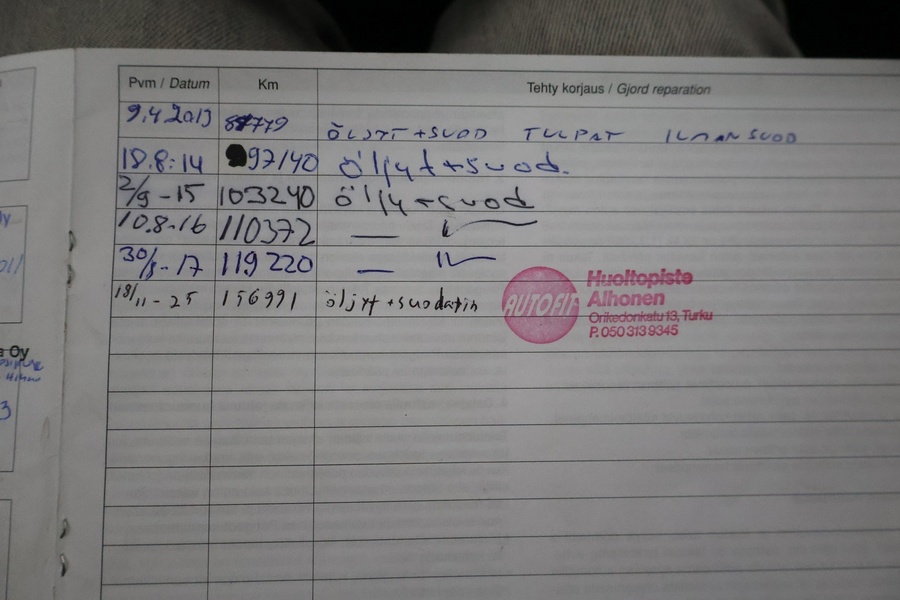 Pvm / Datum Km Tehty korjaus / Gjord reparation
9.4 2013 ÖLJYT +SUOD TULPAT ILMANSUOD
18.8.14 97140 öljyt+suod.
2/9 -15 103240 öljy+suod
10.8.16 110372 — " —
119220 — " —
18/11 - 25 156991 öljyt +suodatin
AUTOFIT
Huoltopiste
Alhonen
Orikedonkatu 13, Turku
P. 050 313 9345
Oy
3